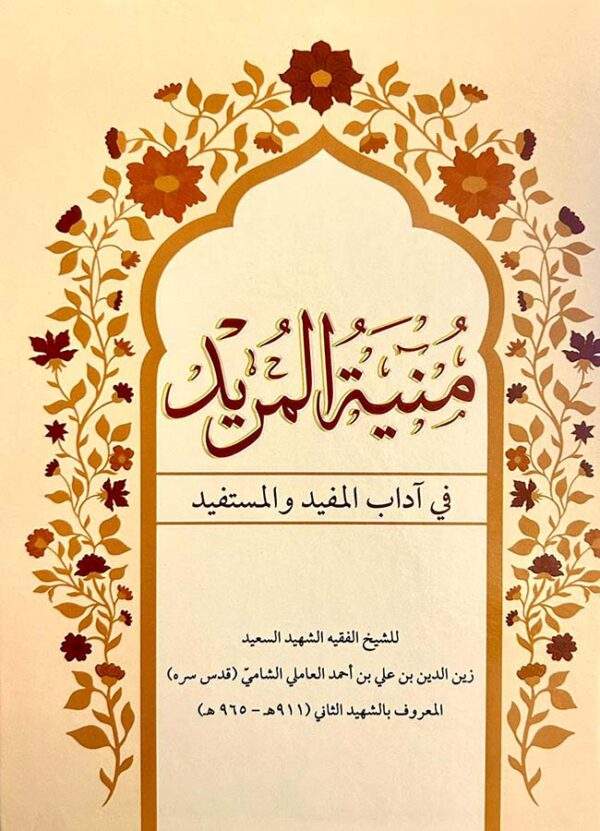 مُنيَةُ المُريد
في آداب المفيد والمستفيد
للشيخ الفقيه الشهيد السعيد
زين الدين بن علي بن أحمد العاملي الشاميّ (قدس سره)
المعروف بالشهيد الثاني (٩١١هـ - ٩٦٥ هـ)